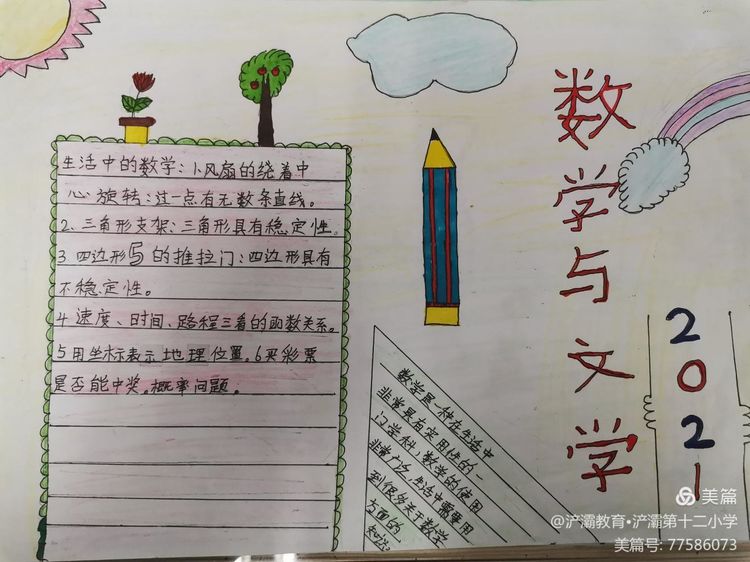 生活中的数学：1、风扇的绕着中
心旋转：过一点有无数条直线。
2、三角形支架：三角形具有稳定性。
3 四边形写的推拉门：四边形具有
不稳定性。
4 速度、时间、路程三看的函数关系。
5用坐标表示地理位置。6买彩票
是否能中奖。概率问题。
数学是一种在生活中
非常具有实用性的一
门学科，数学的使用
非常广泛，生活中需要用
到很多关于数学
方面的
知识。
数学与文学
2021
美篇
@浐灞教育•浐灞第十二小学
美篇号: 77586073